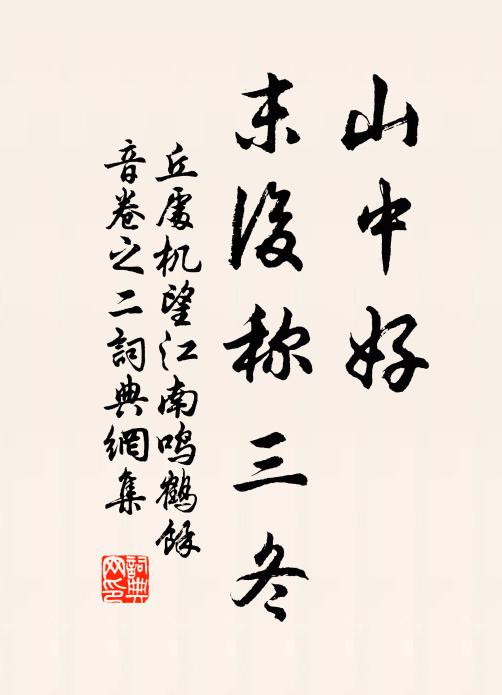 山中好
末後称三冬
丘處机望江南鳴鶴餘
音卷之二詞典網集
詞典
网印